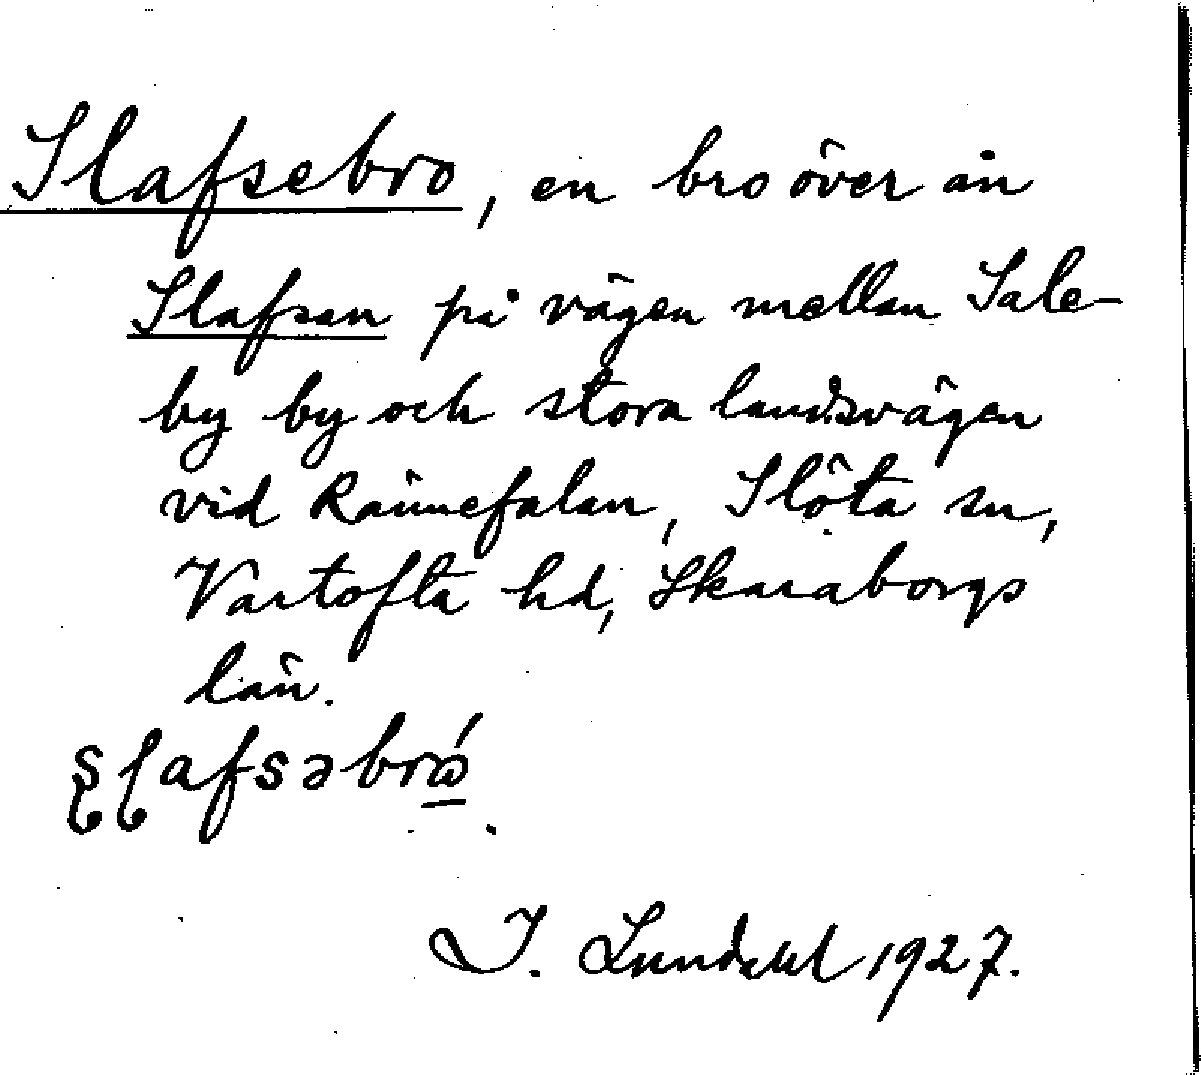 Slafsebro, en bro över ån
Slafsan på vägen mellan Sale-
by by och stora landsvägen
vid Rännefalan, Slöta sn,
Vartofta hd, Skaraborgs
län.
ʂɭafsəbrό̱.
I. Lundahl 1927.